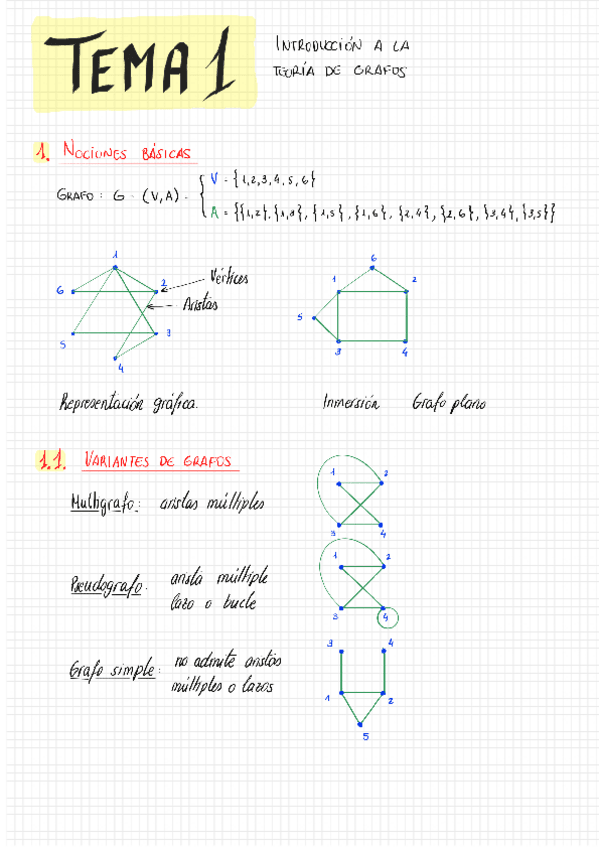 TEMA 1
INTRODUCCIÓN A LA
TEORÍA DE GRAFOS
1. NOCIONES BÁSICAS
GRAFO: G = (V,A) =
V = {1,2,3,4,5,6}
A = {{1,2},{1,3},{1,5},{1,6},{2,4},{2,6},{3,4},{3,5}}
1
6
2
Vértices
Aristas
5
3
4
6
1
2
5
3
4
Representación gráfica.
Inmersión Grafo plano
1.1. VARIANTES DE GRAFOS
Multigrafo: aristas múltiples
1
2
3
4
Pseudografo: arista múltiple
lazo o bucle
1
2
3
4
Grafo simple: no admite aristas
múltiples o lazos
3
4
1
2
5